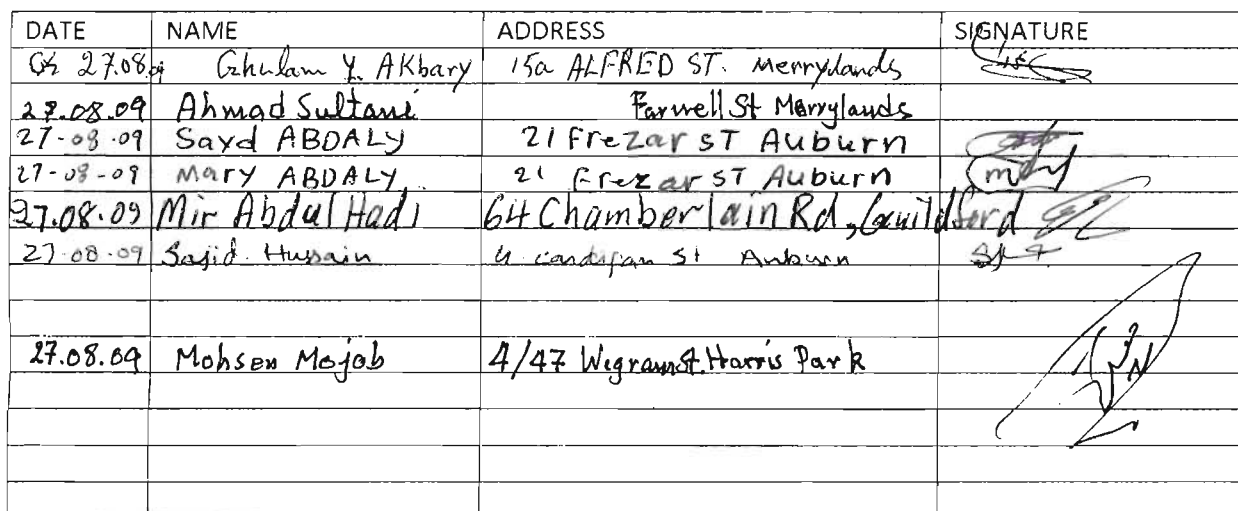 DATE NAME ADDRESS SIGNATURE
27.08.09 Ghulam Y. AKbary 15a ALFRED ST. Merrylands
27.08.09 Ahmad Sultani Farwell St Merrylands
27-08-09 Sayd ABDALY 21 Frezar ST Auburn
27-08-09 Mary ABDALY 21 Frezar ST Auburn
27.08.09 Mir Abdul Hadi 64 Chamberlain Rd, Guildford
27.08.09 Sajid Hussain St Auburn
27.08.09 Mohsen Mojab 4/47 Wigram St. Harris Park